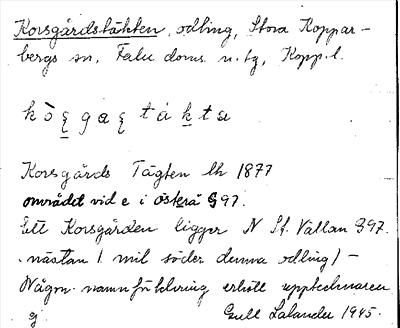 Korsgårdstäkten, odling, Stora Koppar-
bergs sn, Falu doms. n. tg, Kopp. l.
Korsgårds Tägten lk 1877
området vid e i österå §97.
Ett Korsgården ligger N St. Vällan §97.
nästan 1 mil söder denna odling) –
Någon namnförklaring erhöll upptecknaren
ej Gull Lalander 1945.